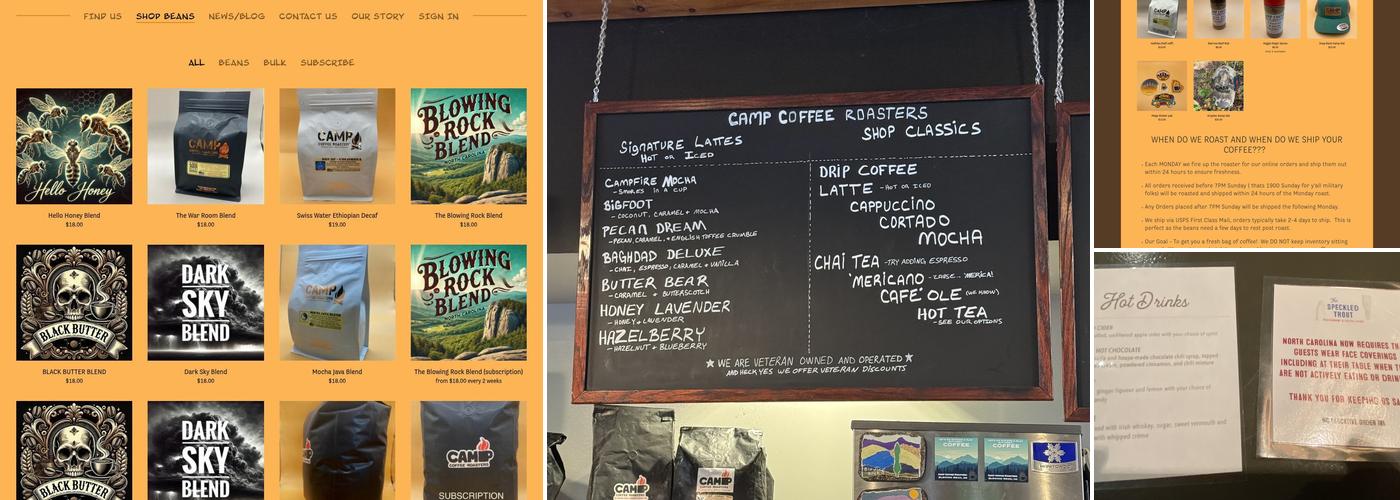 FIND US SHOP BEANS NEWS/BLOG CONTACT US OUR STORY SIGN IN
ALL BEANS BULK SUBSCRIBE
Hello Honey
CAMP
CAMP
BLOWING
ROCK
BLEND
NORTH CAROLINA
Hello Honey Blend
$18.00
The War Room Blend
$18.00
Swiss Water Ethiopian Decaf
$19.00
The Blowing Rock Blend
$18.00
BLACK BUTTER
DARK
SKY
BLEND
CAMP
BLOWING
ROCK
BLEND
NORTH CAROLINA
BLACK BUTTER BLEND
$18.00
Dark Sky Blend
$18.00
Mocha Java Blend
$18.00
The Blowing Rock Blend (subscription)
from $18.00 every 2 weeks
BLACK BUTTER
DARK
SKY
BLEND
CAMP
COFFEE ROASTERS
SUBSCRIPTION
CAMP COFFEE ROASTERS
SIGNATURE LATTES
HOT OR ICED
CAMPFIRE MOCHA
- SMORES IN A CUP
BIGFOOT
- COCONUT, CARAMEL + MOCHA
PECAN DREAM
- PECAN, CARAMEL, + ENGLISH TOFFEE CRUMBLE
BAGHDAD DELUXE
- CHAI, ESPRESSO, CARAMEL + VANILLA
BUTTER BEAR
- CARAMEL + BUTTERSCOTCH
HONEY LAVENDER
- HONEY + LAVENDER
HAZELBERRY
- HAZELNUT + BLUEBERRY
SHOP CLASSICS
DRIP COFFEE
LATTE - HOT OR ICED
CAPPUCCINO
CORTADO
MOCHA
CHAI TEA - TRY ADDING ESPRESSO
'MERICANO - CAUSE... 'MERICA!
CAFE' OLE (WE KNOW)
HOT TEA
- SEE OUR OPTIONS
★ WE ARE VETERAN OWNED AND OPERATED ★
AND HECK YES WE OFFER VETERAN DISCOUNTS
CAMP
CAMP
COFFEE
COFFEE
WHEN DO WE ROAST AND WHEN DO WE SHIP YOUR
COFFEE???
- Each MONDAY we fire up the roaster for our online orders and ship them out
within 24 hours to ensure freshness.
- All orders received before 7PM Sunday ( thats 1900 Sunday for y'all military
folks) will be roasted and shipped within 24 hours of the Monday roast.
- Any Orders placed after 7PM Sunday will be shipped the following Monday.
- We ship via USPS First Class Mail, orders typically take 2-4 days to ship. This is
perfect as the beans need a few days to rest post roast.
- Our Goal - To get you a fresh bag of coffee! We DO NOT keep inventory sitting
Hot Drinks
CIDER
unfiltered apple cider with your choice of spirit
HOT CHOCOLATE
and house-made chocolate chili syrup, topped
cinnamon, and chili mixture
ginger liqueur and lemon with your choice of
with Irish whiskey, sugar, sweet vermouth and
with whipped crème
The
SPECKLED
TROUT
NORTH CAROLINA NOW REQUIRES TH
GUESTS WEAR FACE COVERINGS
INCLUDING AT THEIR TABLE WHEN T
ARE NOT ACTIVELY EATING OR DRIN
THANK YOU FOR KEEPING US SA